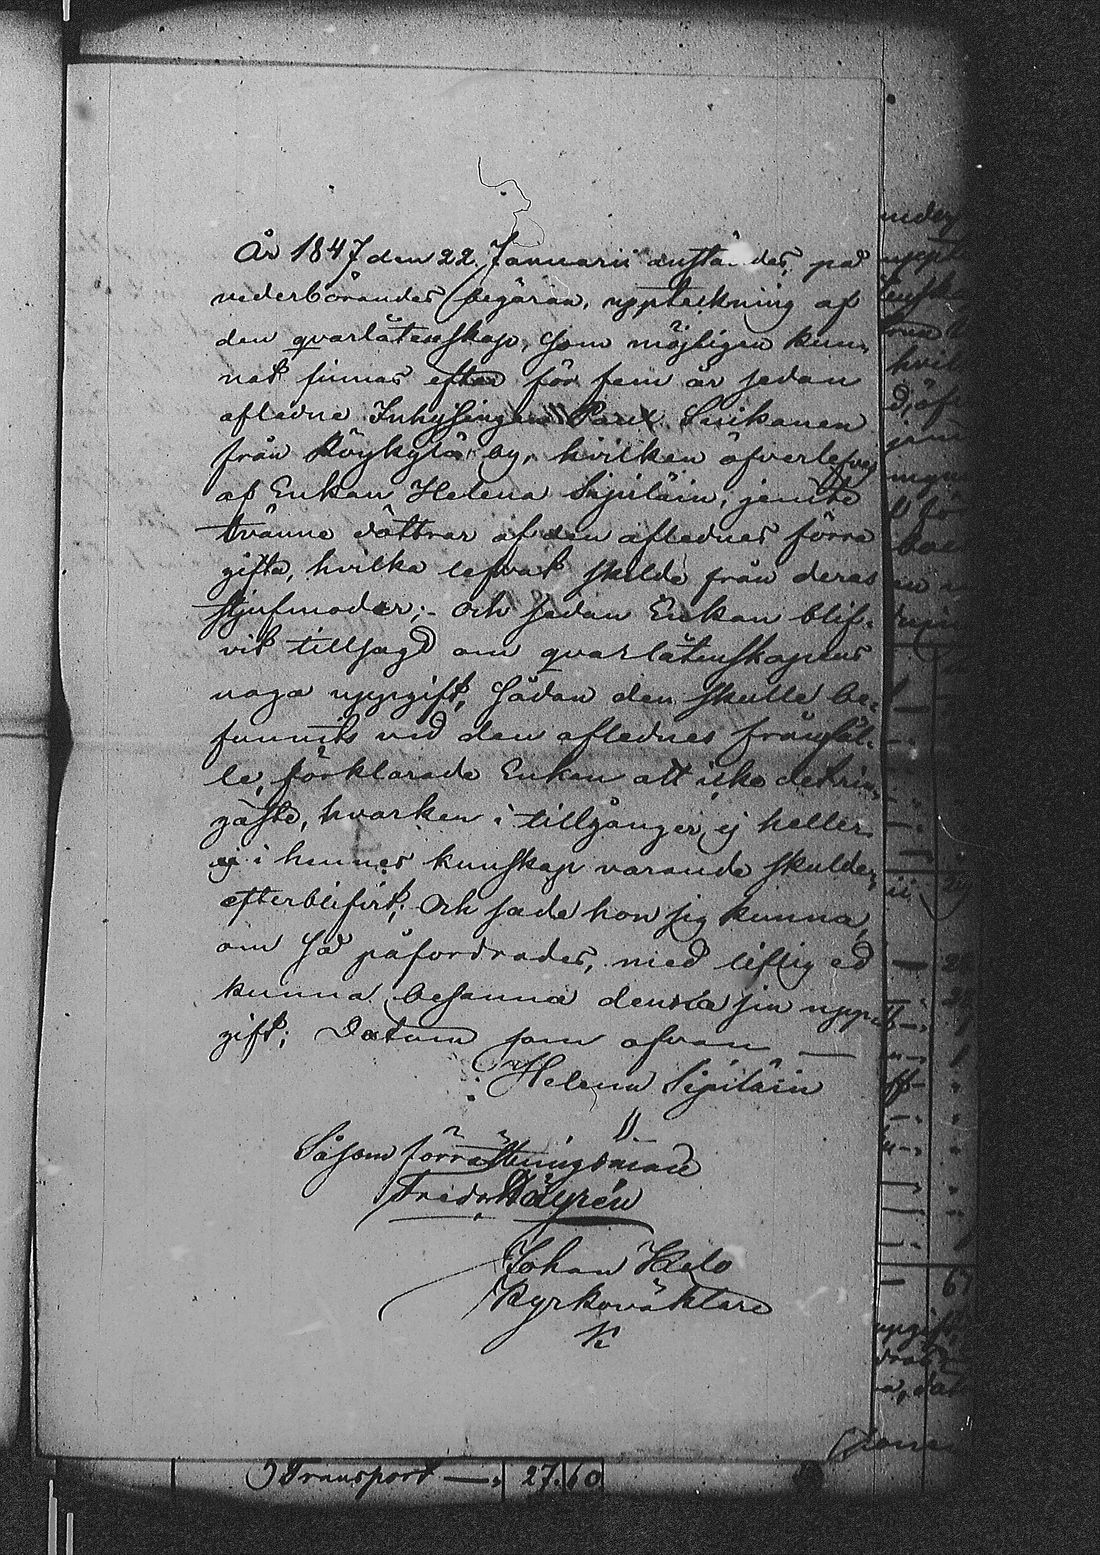 År 1847 den 22 Januarii anställdes, på
vederbörandes begäran, uppteckning af
den qvarlåtenskap, som möjligen kun-
nat finnas efter för fem år sedan
aflidne Inhysingen Paul Sirkanen
från Köykylä by, hvilken öfverlefves
af Enkan Helena Sipiläin, jemte
tvänne döttrar af den aflidnes förra
gifte, hvilka lefvat skilde från deras
stjufmoder; och sedan Enkan blif-
vit tillsagd om qvarlåtenskapens
noga uppgift, sådan den skulle be-
funnits vid den aflidnes frånfäl-
le, förklarade Enkan att icke det rin-
gaste, hvarken i tillgånger, ej heller
i hennes kunskap varande skulder,
efterblifvit; Och sade hon sig kunna,
om så påfordrades, med liflig ed
kunna besanna denna sin upp-
gift; Datum som ofvan —
Helena Sipiläin
Såsom förrättningsman
Fredr
Johan Kelo
Kyrkoväktare
Transport — 27. 60